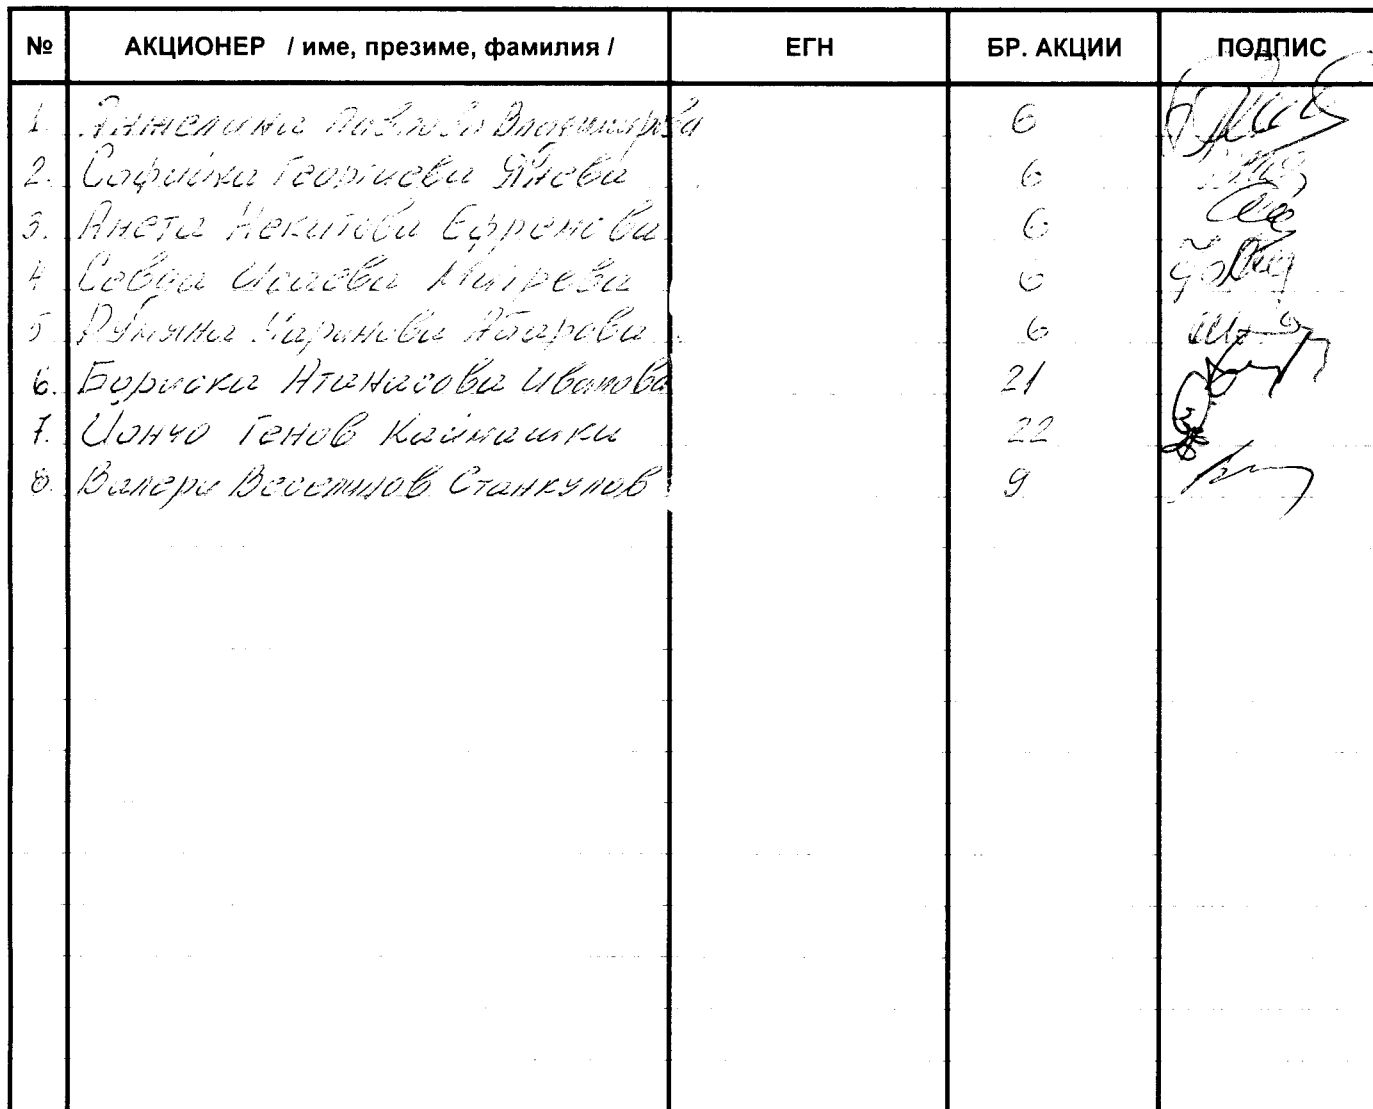 № АКЦИОНЕР / име, презиме, фамилия / ЕГН БР. АКЦИИ ПОДПИС
1. Анжелина Павлова Владимирова 6
2. Софийка Георгиева Янева 6
3. Анета Некитова Ефремова 6
4 Севда Исаева Митрева 6
5 Румяна Атарова 6
6. Бориска Атанасова Иванова 21
7. Йончо Генов Каймашки 22
8. Валери Веселинов Станкулов 9